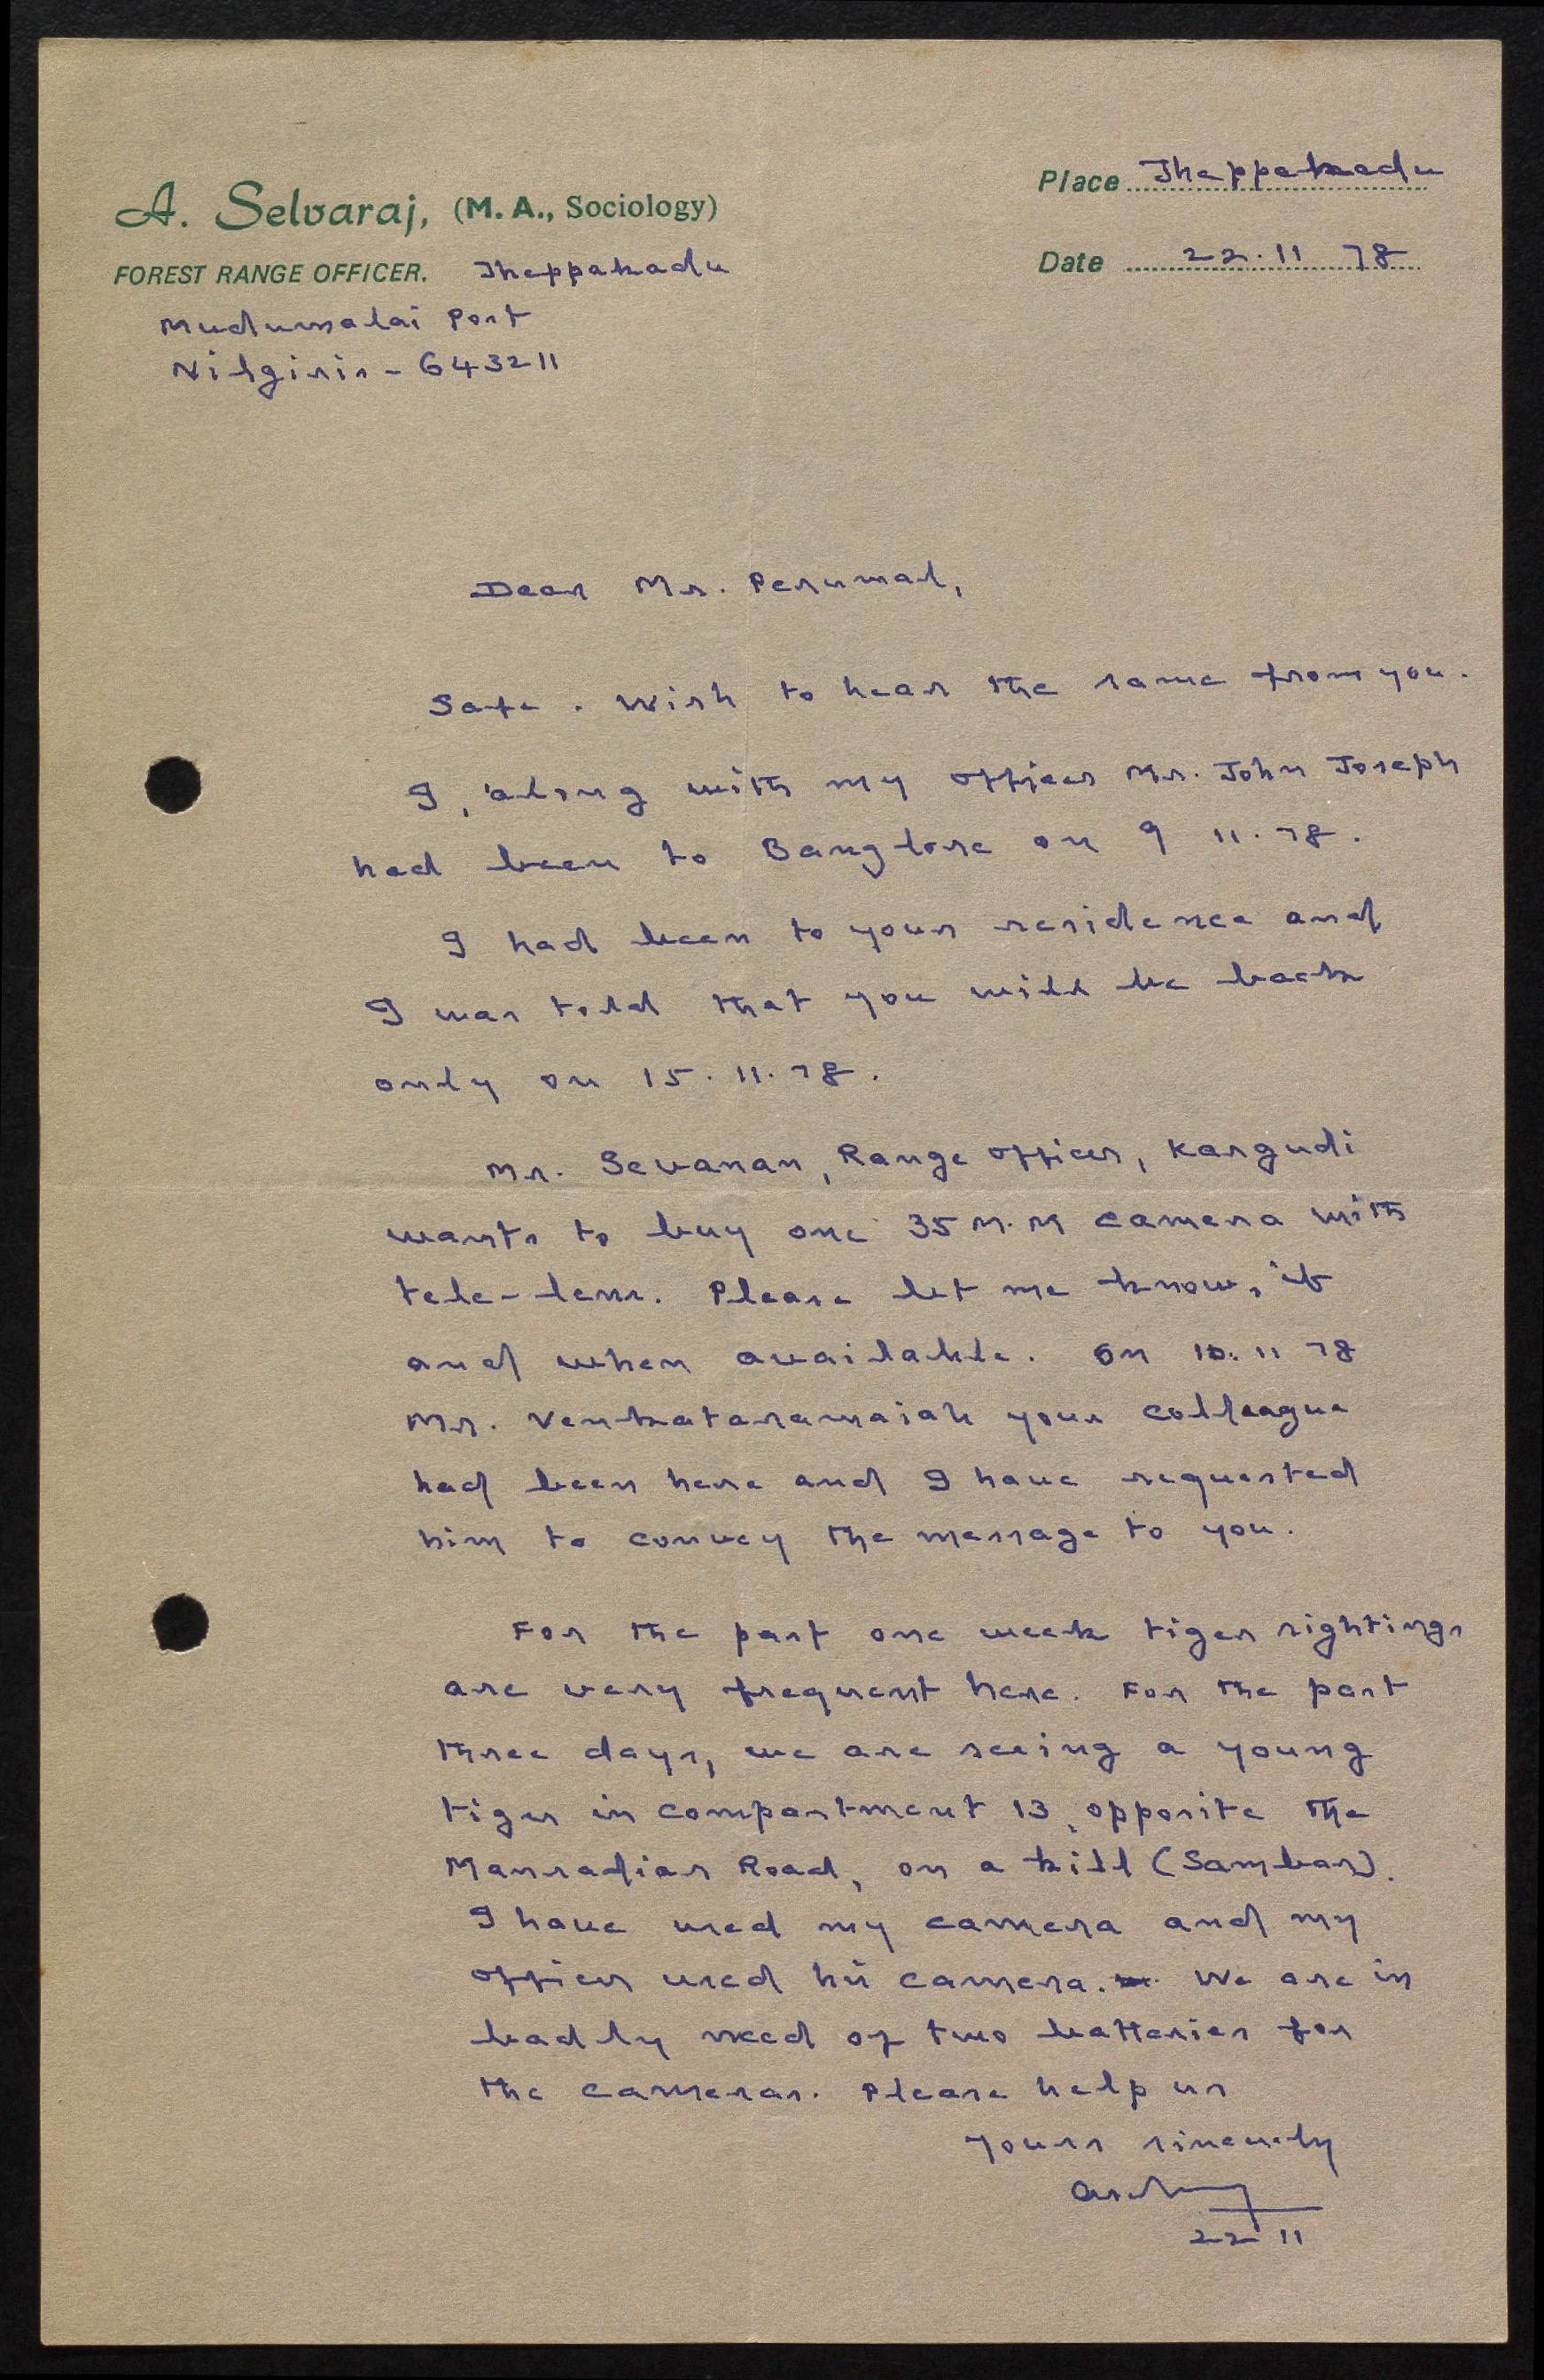 A. Selvaraj, (M. A., Sociology)
FOREST RANGE OFFICER. Theppakadu
Mudumalai Post
Nilgiris - 643211
Place Theppakadu
Date 22.11 78
Dear Mr. Perumal,
Safe. Wish to hear the same from you.
I, along with my officer Mr. John Joseph
had been to Banglore on 9 11.78.
I had been to your residence and
I was told that you will be back
only on 15.11.78.
Mr. Sevanan, Range officer, Kargudi
wants to buy one 35 M.M camera with
tele-lens. Please let me know, if
and when available. On 10.11 78
Mr. Venkataramaiah your colleague
had been here and I have requested
him to convey the message to you.
For the past one week tiger sightings
are very frequent here. For the past
three days, we are seeing a young
tiger in compartment 13, opposite the
Manradiar Road, on a kill (Sambar).
I have used my camera and my
officer used his camera. We are in
badly need of two batteries for
the cameras. Please help us
yours sincerely
22 11